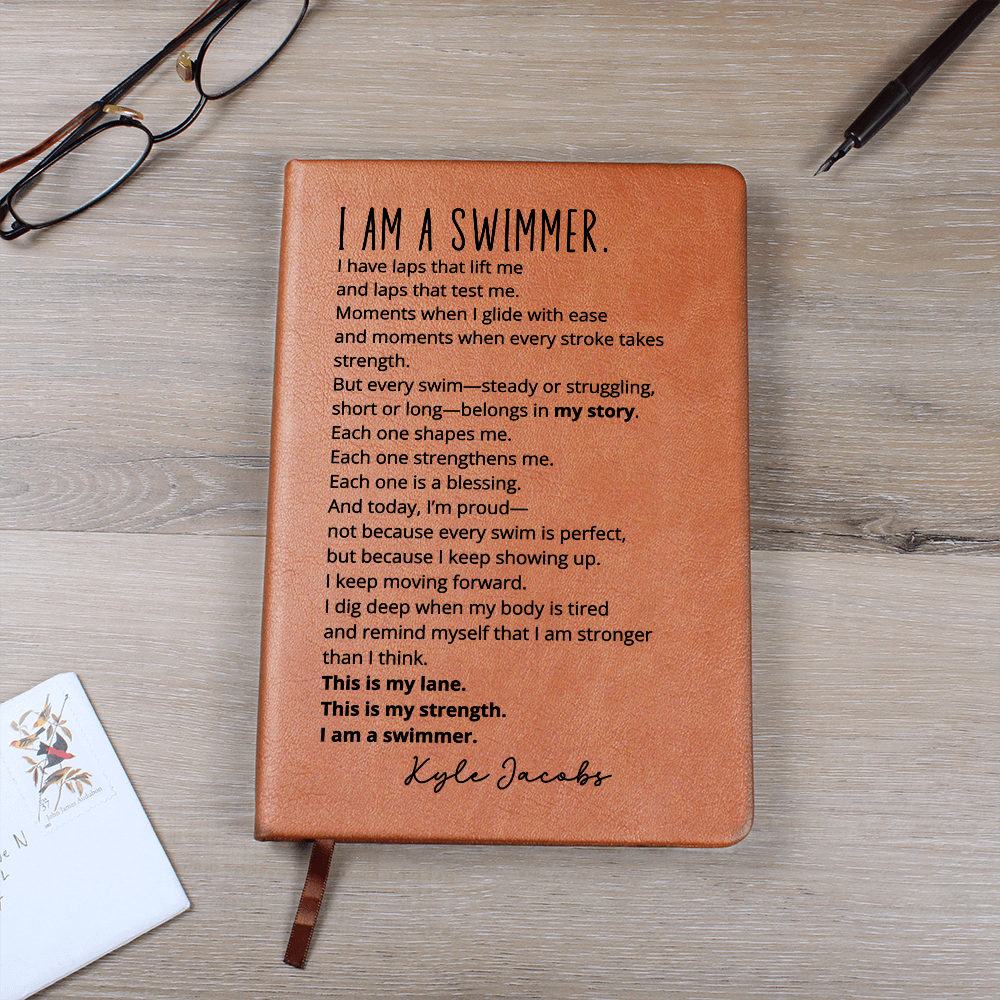 I AM A SWIMMER.
I have laps that lift me
and laps that test me.
Moments when I glide with ease
and moments when every stroke takes
strength.
But every swim—steady or struggling,
short or long—belongs in my story.
Each one shapes me.
Each one strengthens me.
Each one is a blessing.
And today, I’m proud—
not because every swim is perfect,
but because I keep showing up.
I keep moving forward.
I dig deep when my body is tired
and remind myself that I am stronger
than I think.
This is my lane.
This is my strength.
I am a swimmer.
Kyle Jacobs
37
John James Audubon
N